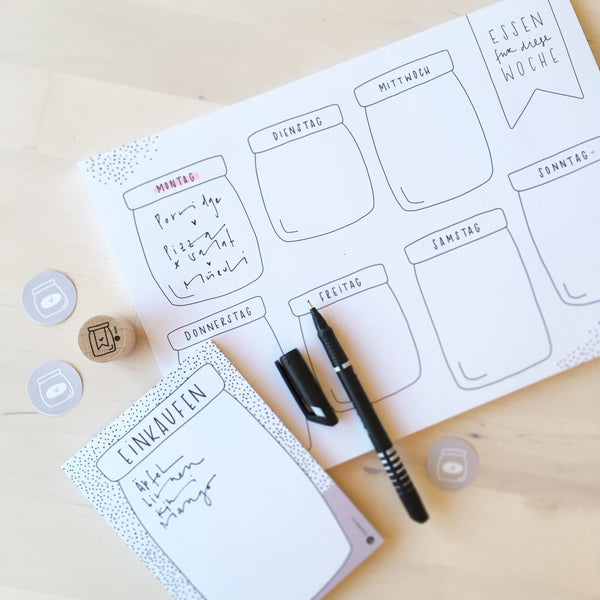 ESSEN
für diese
WOCHE
MITTWOCH
DIENSTAG
MONTAG
Porridge
Pizza
* Salat
Müsli
SONNTAG
SAMSTAG
FREITAG
DONNERSTAG
EINKAUFEN
Äpfel
Birnen
Kiwi
Mango